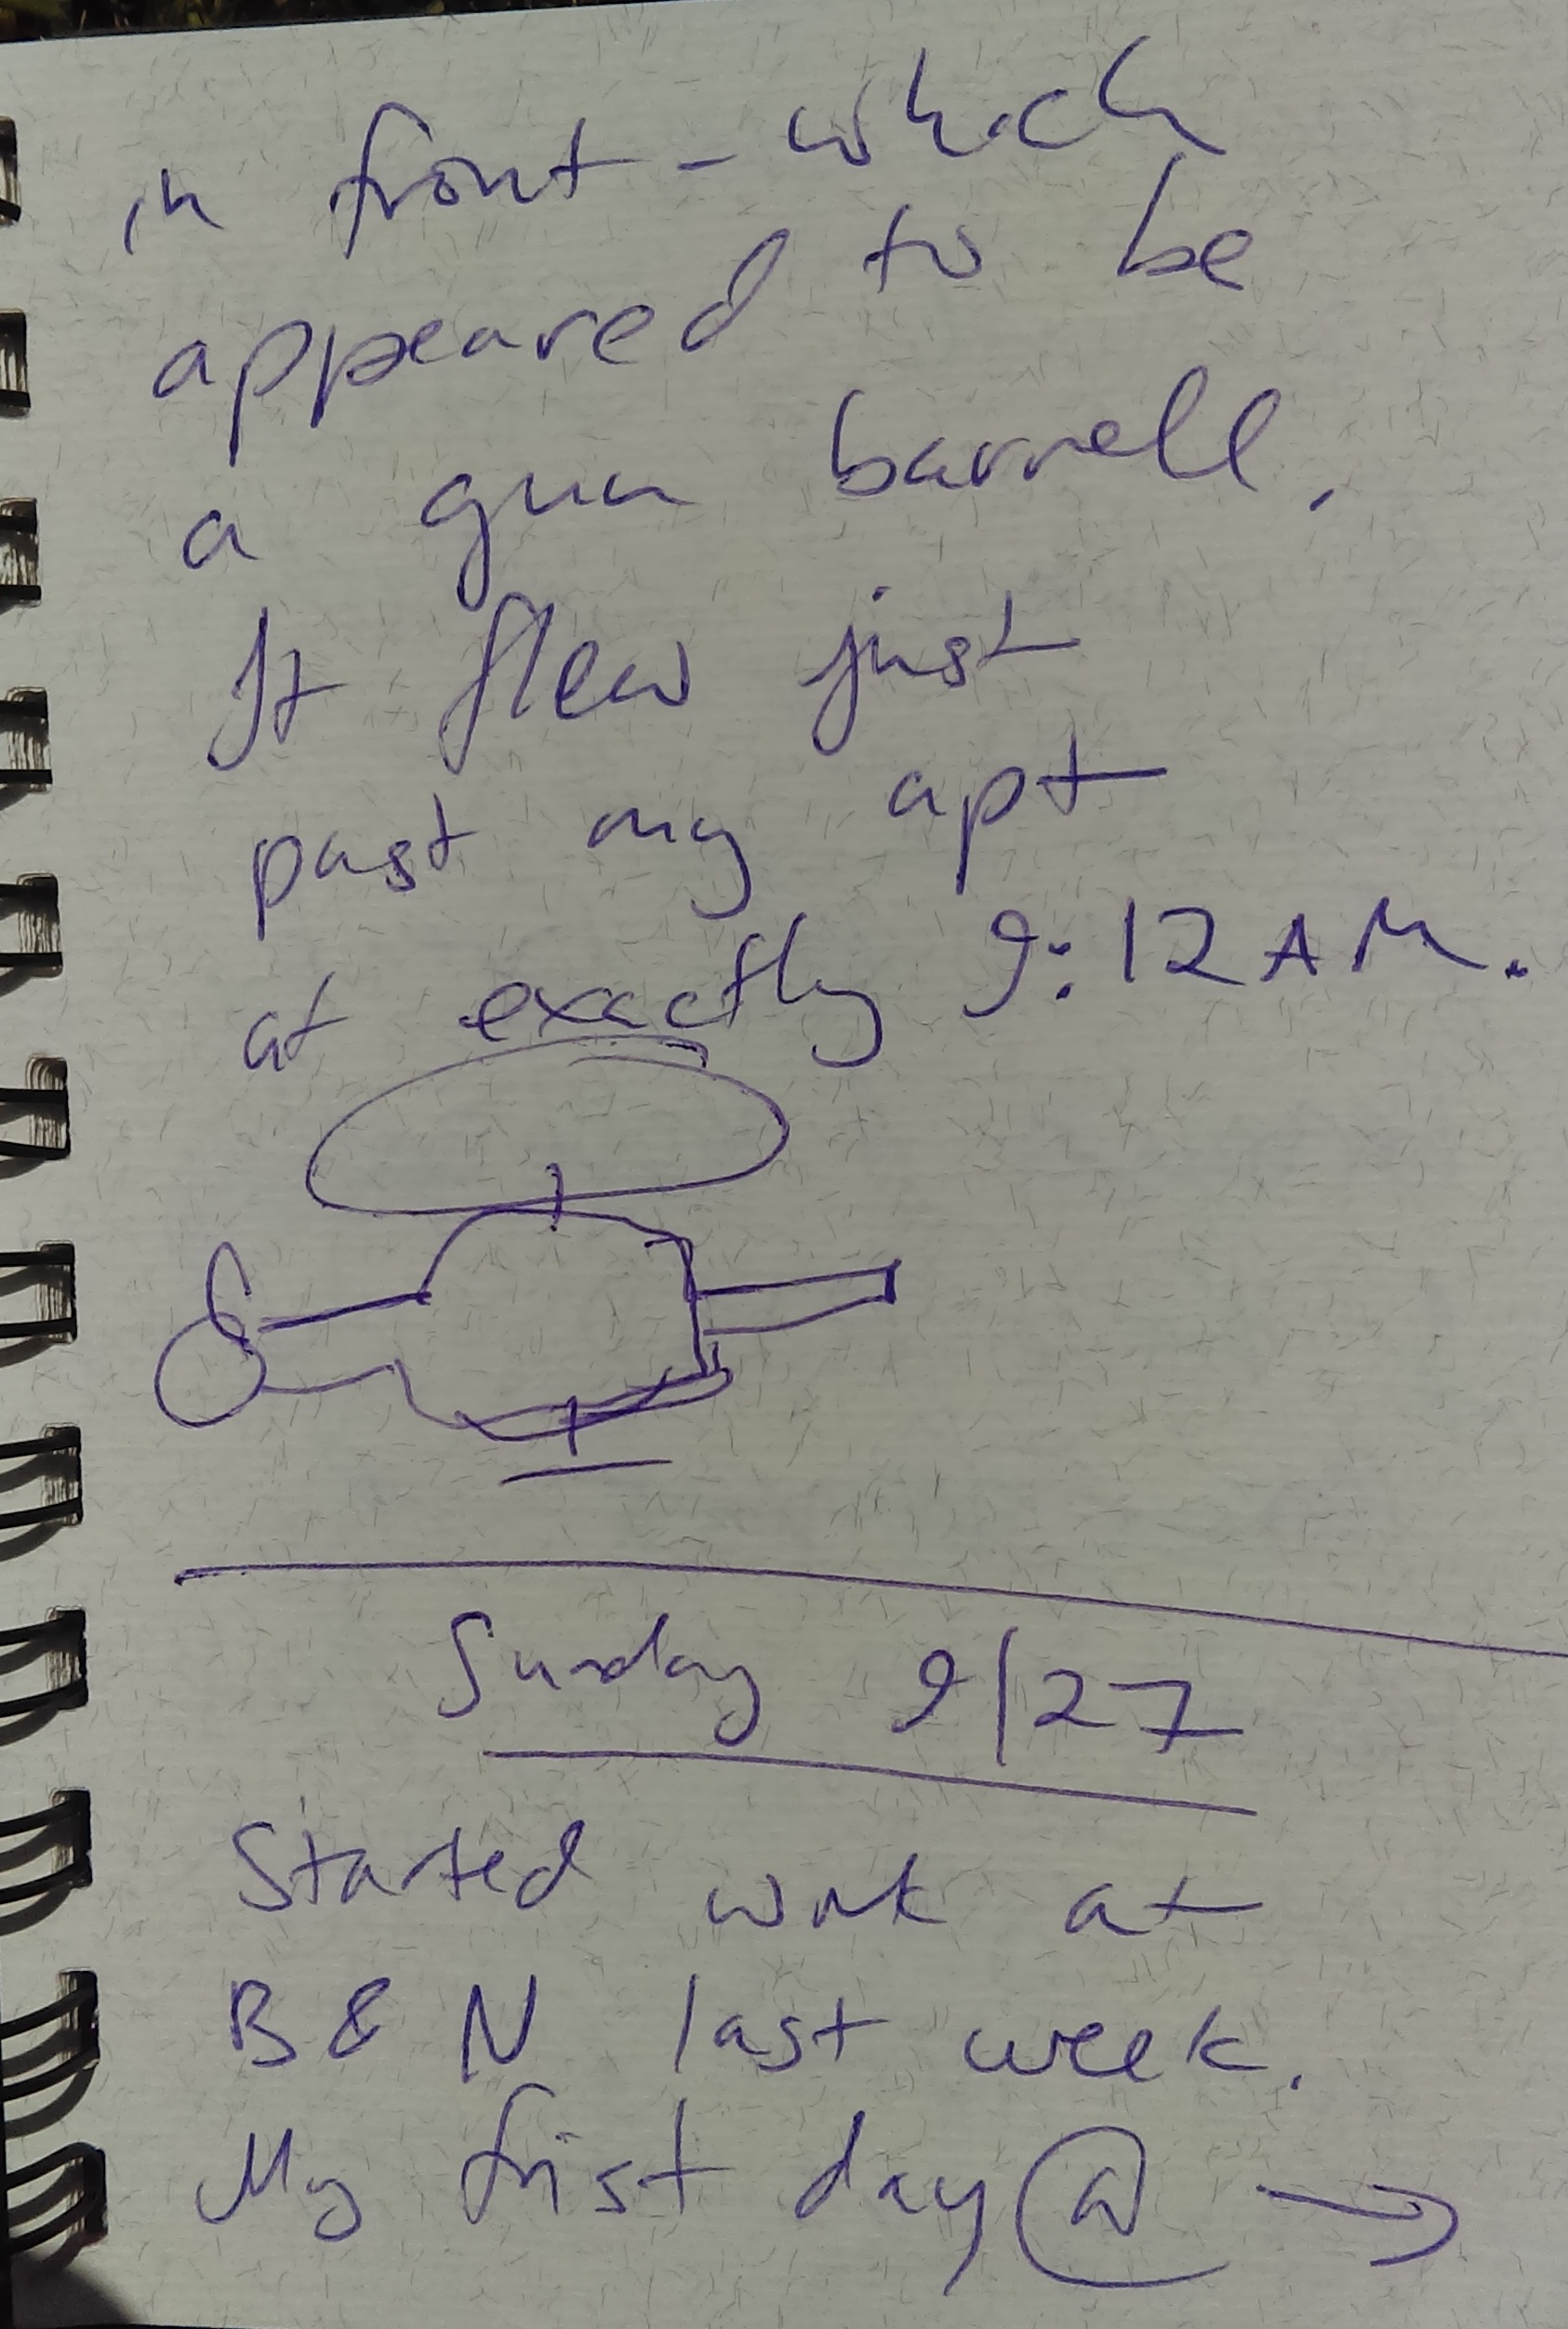 in front - which
appeared to be
a gun barrell.
It flew just
past my apt
at exactly 9:12 AM.
Sunday 9/27
Started work at
B & N last week.
My frist day @ →